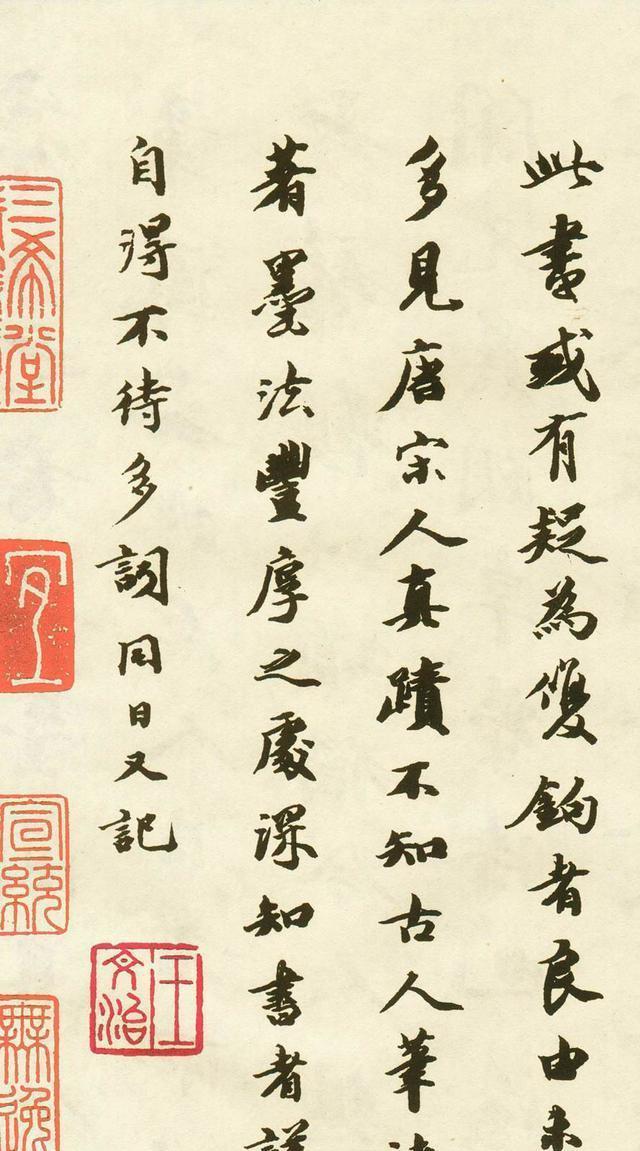 此書或有疑為雙鉤者良由未
多見唐宋人真蹟不知古人筆
著墨法豐厚之處深知書者
自得不待多詞同日又記
王文治
三希堂
宣統
無逸